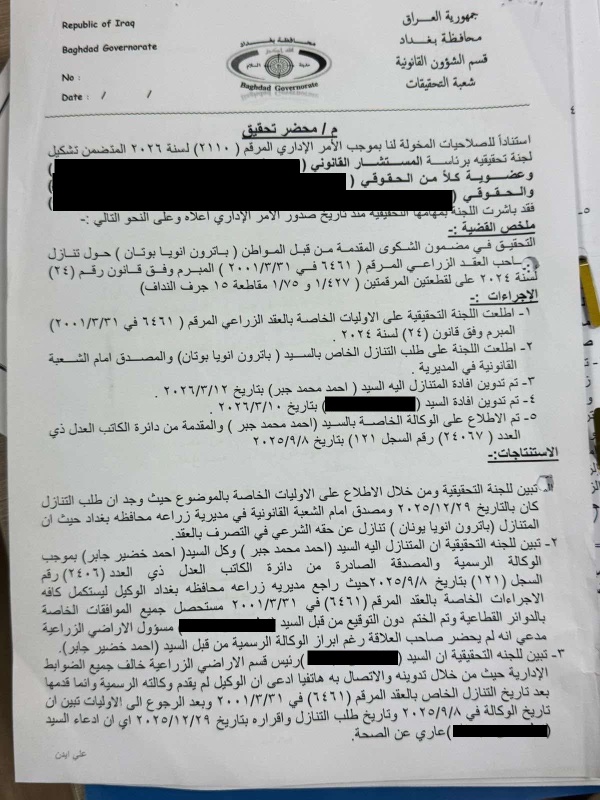 Republic of Iraq
Baghdad Governorate
No :
Date : / /
محافظة بغداد
Baghdad Governorate
جمهورية العراق
محافظة بغداد
قسم الشؤون القانونية
شعبة التحقيقات
م / محضر تحقيق
استناداً للصلاحيات المخولة لنا بموجب الأمر الإداري المرقم ( ٢١١٠) لسنة ٢٠٢٦ المتضمن تشكيل
لجنة تحقيقيه برئاسة المستشار القانوني (
وعضوية كلاً من الحقوقي (
والحقوقي (
فقد باشرت اللجنة بمهامها التحقيقية منذ تاريخ صدور الأمر الإداري أعلاه وعلى النحو التالي :-
ملخص القضية :-
التحقيق في مضمون الشكوى المقدمة من قبل المواطن ( باترون انويا بوتان ) حول تنازل
صاحب العقد الزراعي المرقم ( ٦٤٦١ في ٢٠٠١/٣/٣١ ) المبرم وفق قانون رقم (٢٤)
لسنة ٢٠٢٤ على لقطعتين المرقمتين ( ١/٤٢٧ و ١/٧٥ مقاطعة ١٥ جرف النداف)
الاجراءات :-
١- اطلعت اللجنة التحقيقية على الاوليات الخاصة بالعقد الزراعي المرقم ( ٦٤٦١ في ٢٠٠١/٣/٣١)
المبرم وفق قانون (٢٤) لسنة ٢٠٢٤ .
٢- اطلعت اللجنة على طلب التنازل الخاص بالسيد ( باترون انويا بوتان) والمصدق امام الشعبة
القانونية في المديرية .
٣- تم تدوين افادة المتنازل اليه السيد ( احمد محمد جبر) بتاريخ ٢٠٢٦/٣/١٢ .
٤- تم تدوين افادة السيد ( ) بتاريخ ٢٠٢٦/٣/١٠ .
٥- تم الاطلاع على الوكالة الخاصة بالسيد (احمد محمد جبر ) والمقدمة من دائرة الكاتب العدل ذي
العدد ( ٢٤٠٦٧) رقم السجل (١٢١) بتاريخ ٢٠٢٥/٩/٨
الاستنتاجات:-
تبين للجنة التحقيقية ومن خلال الاطلاع على الاوليات الخاصة بالموضوع حيث وجد ان طلب التنازل
كان بالتاريخ ٢٠٢٥/١٢/٢٩ ومصدق امام الشعبة القانونية في مديرية زراعه محافظه بغداد حيث ان
المتنازل (باترون انويا يونان ) تنازل عن حقه الشرعي في التصرف بالعقد.
٢- تبين للجنه التحقيقية ان المتنازل اليه السيد (احمد محمد جبر ) وكل السيد( احمد خضير جابر) بموجب
الوكالة الرسمية والمصدقة الصادرة من دائرة الكاتب العدل ذي العدد (٢٤٠٦) رقم
السجل (١٢١) بتاريخ ٢٠٢٥/٩/٨حيث راجع مديريه زراعه محافظه بغداد الوكيل ليستكمل كافه
الاجراءات الخاصة بالعقد المرقم (٦٤٦١) في ٢٠٠١/٣/٣١ مستحصل جميع الموافقات الخاصة
بالدوائر القطاعية وتم الختم دون التوقيع من قبل السيد مسؤول الاراضي الزراعية
مدعي انه لم يحضر صاحب العلاقة رغم ابراز الوكالة الرسمية من قبل السيد (احمد خضير جابر).
٣- تبين للجنه التحقيقية ان السيد ( )رئيس قسم الاراضي الزراعية خالف جميع الضوابط
الإدارية حيث من خلال تدوينه والاتصال به هاتفيا ادعى ان الوكيل لم يقدم وكالته الرسمية وانما قدمها
بعد تاريخ التنازل الخاص بالعقد المرقم (٦٤٦١) في ٢٠٠١/٣/٣١ وبعد الرجوع الى الاوليات تبين ان
تاريخ الوكالة في ٢٠٢٥/٩/٨ وتاريخ طلب التنازل واقراره بتاريخ ٢٠٢٥/١٢/٢٩ اي ان ادعاء السيد
( )عاري عن الصحة.
علي ايدن